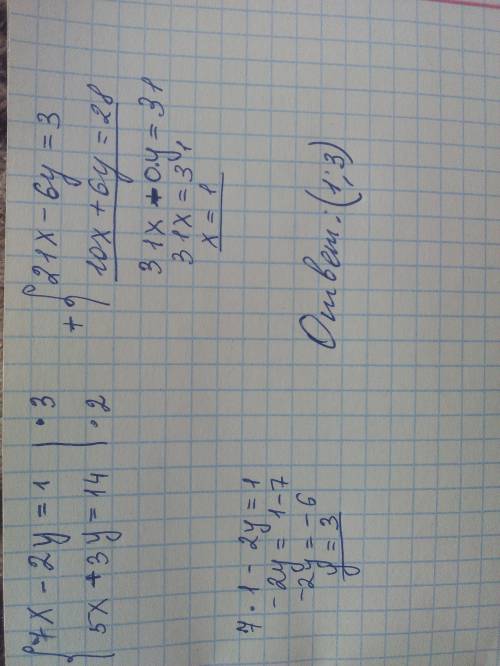 {7x - 2y = 1 | · 3
{5x + 3y = 14 | · 2
+ {21x - 6y = 3
{10x + 6y = 28
31x + 0·y = 31
31x = 31
x = 1
7 · 1 - 2y = 1
-2y = 1-7
-2y = -6
y = 3
Ответ: (1; 3)